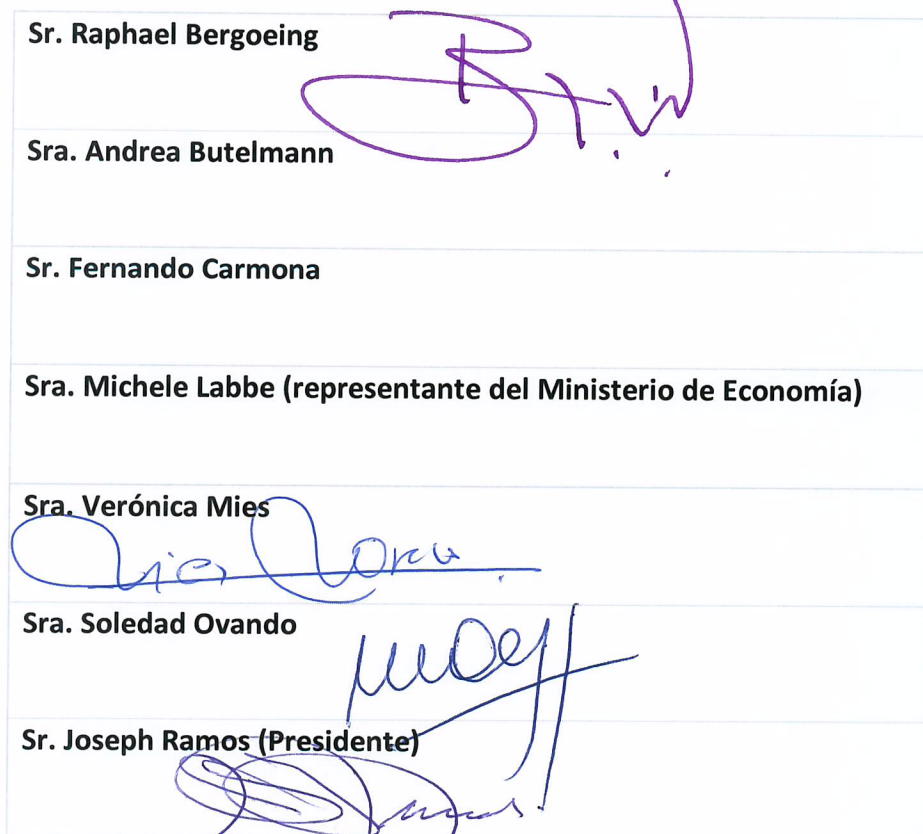 Sr. Raphael Bergoeing
Sra. Andrea Butelmann
Sr. Fernando Carmona
Sra. Michele Labbe (representante del Ministerio de Economía)
Sra. Verónica Mies
Sra. Soledad Ovando
Sr. Joseph Ramos (Presidente)